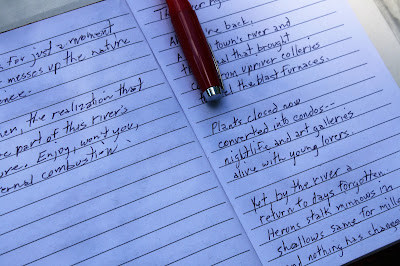 for just a moment,
messes up the nature
then, the realization that
part of this river's
Enjoy, won't you,
combustion
back,
town's river and
that brought
from upriver collieries
the blast furnaces.
Plants closed now
converted into condos--
nightlife and art galleries
alive with young lovers.
Yet by the river a
return to days forgotten
Herons stalk minnows in
shallows same for
and nothing has changed